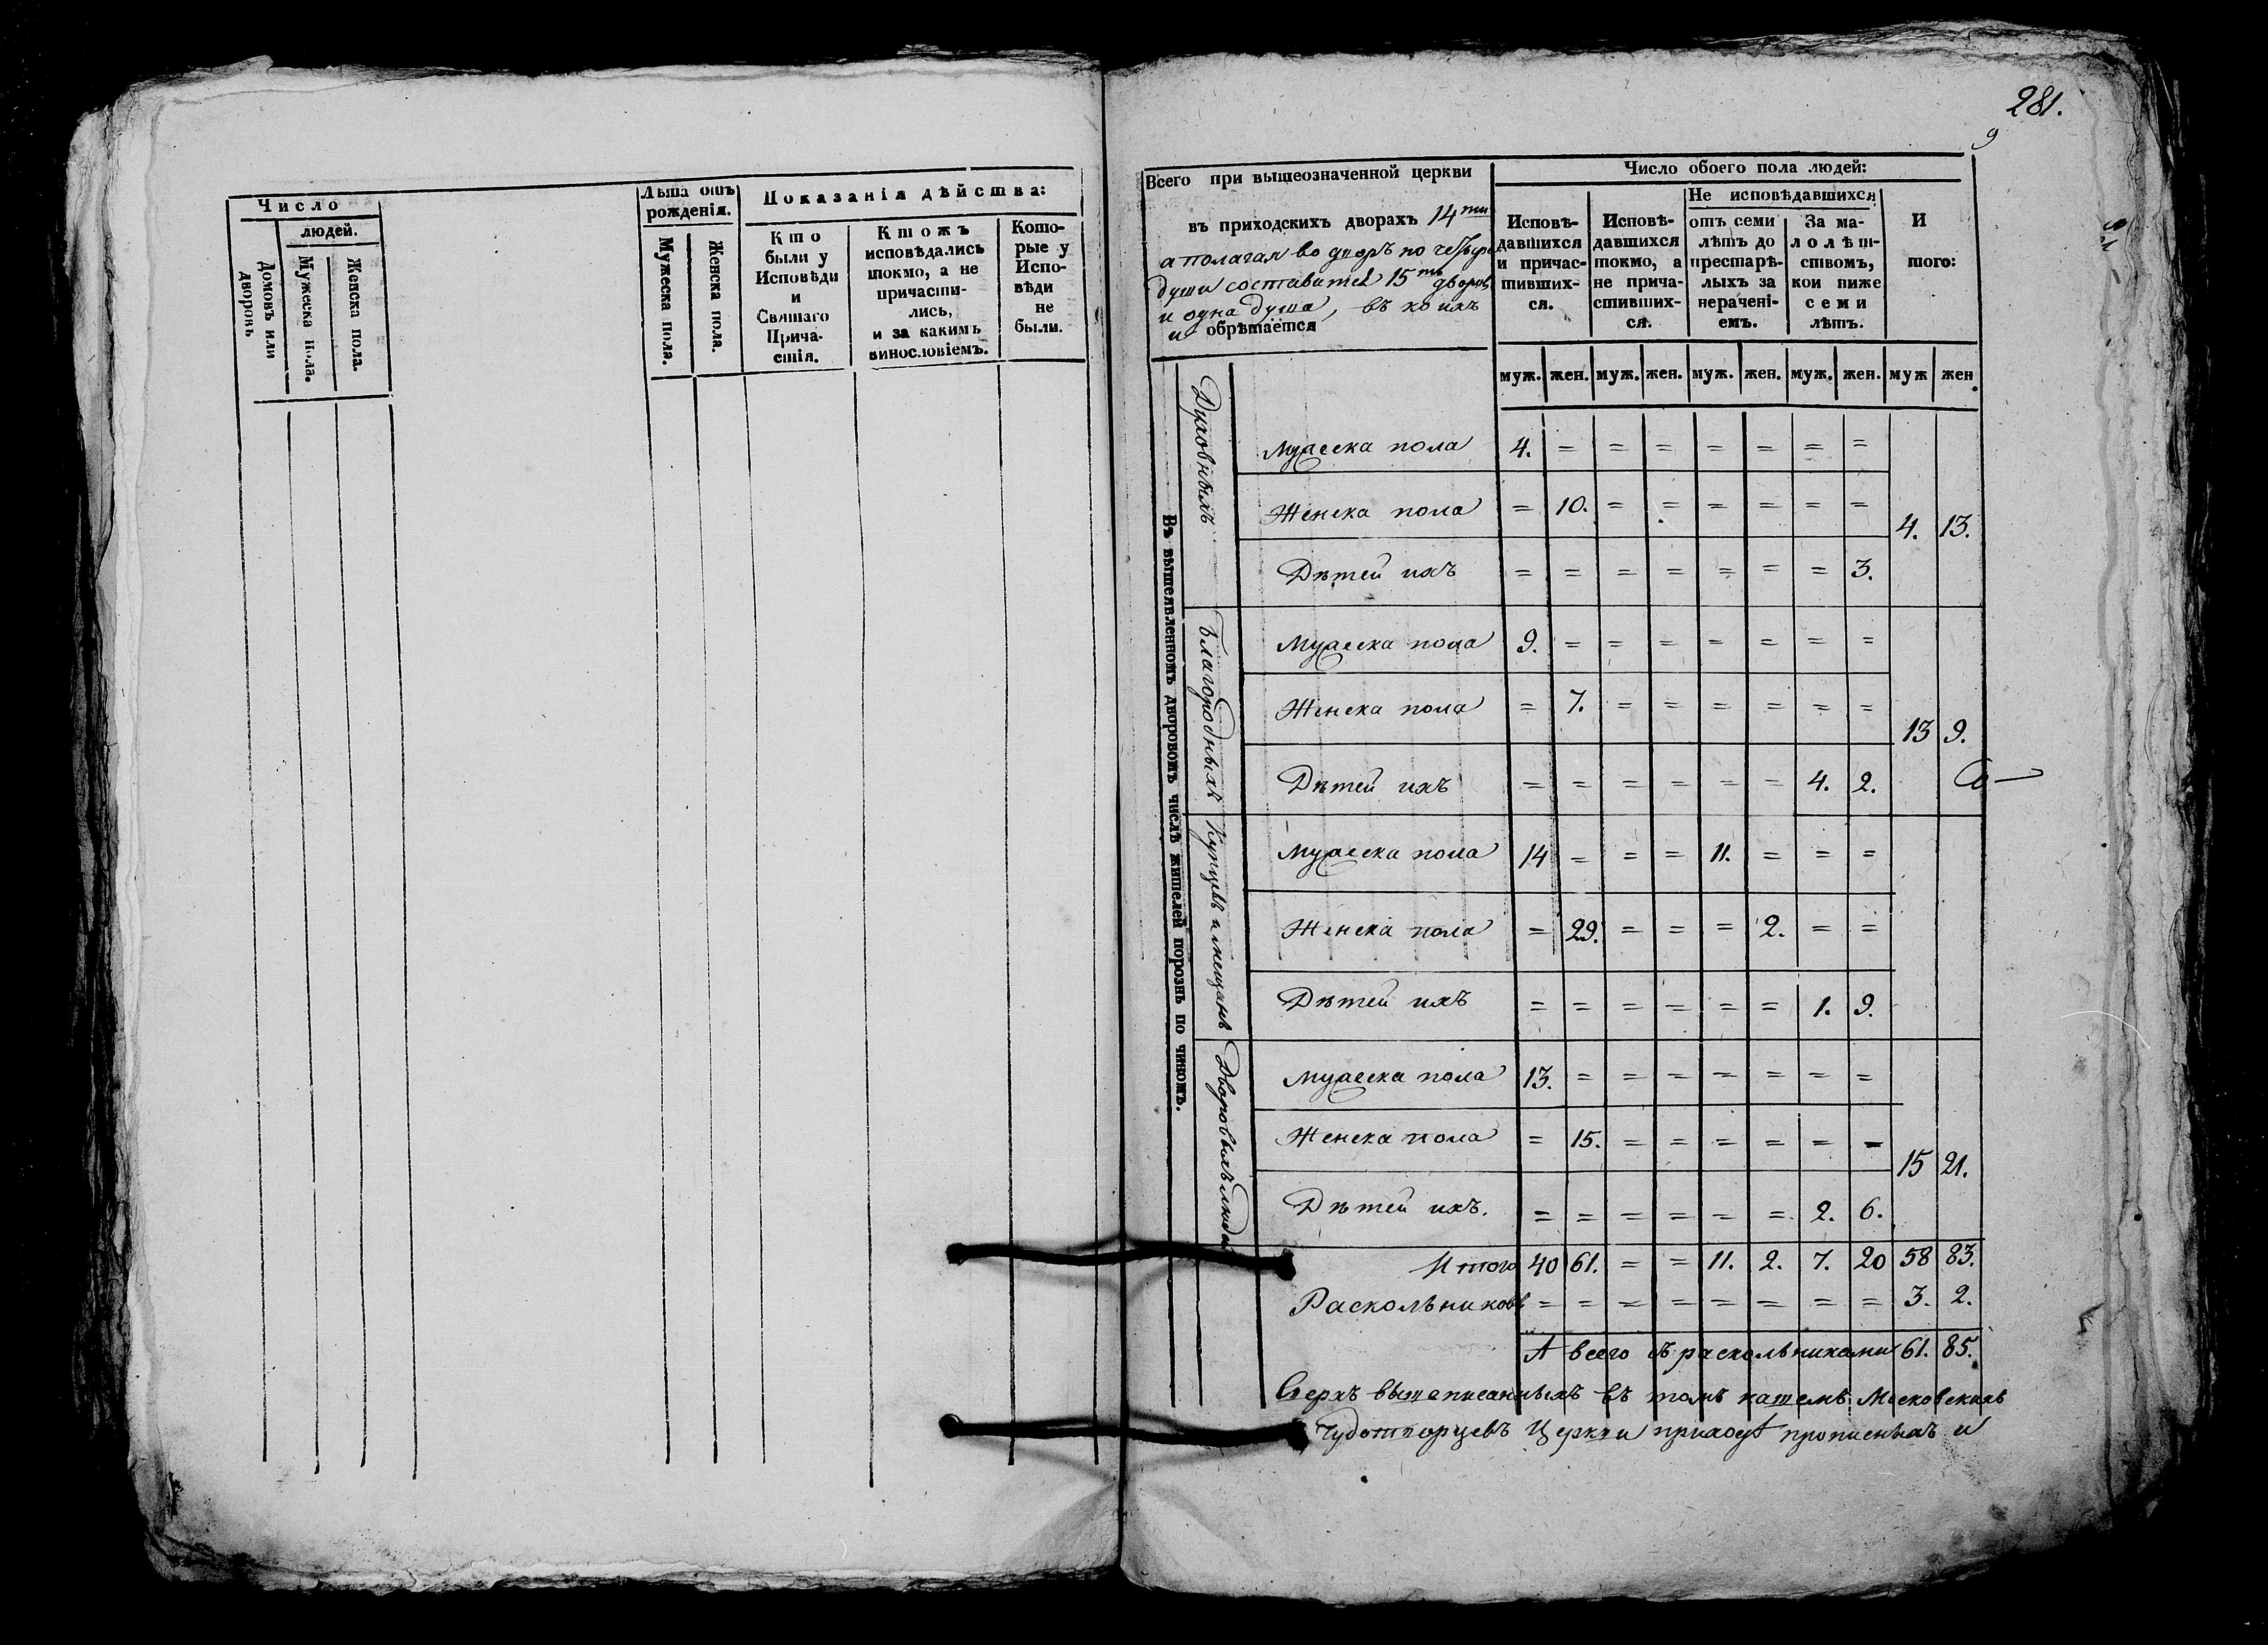 281.
9
Число
людей.
Домовъ или дворовъ
Мужеска пола.
Женска пола.
Лѣта отъ рожденія.
Мужеска пола.
Женска пола.
Показанія дѣйства:
Кто были у Исповѣди и Святаго Причастія.
Ктожъ исповѣдались токмо, а не причастились, и за какимъ винословіемъ.
Которые у Исповѣди не были.
Всего при вышеозначенной церкви
въ приходскихъ дворахъ 14ти
а полагая во дворъ по четыре
души составится 15ть дворовъ
и одна душа, въ коихъ
и обрѣтается
Число обоего пола людей:
Исповѣдавшихся и причастившихся.
Исповѣдавшихся токмо, а не причастившихся.
Не исповѣдавшихся
отъ семи лѣтъ до престарѣлыхъ за нераченіемъ.
За малолѣтствомъ, кои ниже семи лѣтъ.
Итого:
муж. жен. муж. жен. муж. жен. муж. жен. муж жен.
Въ вышеявленномъ дворовомъ числѣ жителей порознь по чиномъ.
Духовныхъ
Мужеска пола 4. = = = = = = =
Женска пола = 10. = = = = = =
4. 13.
Дѣтей ихъ = = = = = = = 3.
Благородныхъ
Мужеска пола 9. = = = = = = =
Женска пола = 7. = = = = = =
13 9.
Дѣтей ихъ = = = = = = 4. 2.
Купцѣвъ и мещанъ
Мужеска пола 14 = = = 11. = = =
Женска пола = 29. = = = 2. = =
Дѣтей ихъ = = = = = = 1. 9.
Дворовыхъ людей
Мужеска пола 13. = = = = = = =
Женска пола = 15. = = = = = =
15 21.
Дѣтей ихъ. = = = = = = 2. 6.
Итого 40 61. = = 11. 2. 7. 20 58 83.
Раскольниковъ = = = = = = = = 3. 2.
А всего съ раскольниками 61. 85.
Сверхъ вышеписанныхъ въ томъ нашемъ Московскихъ
Чудотворцевъ Церкви приходѣ прописныхъ и